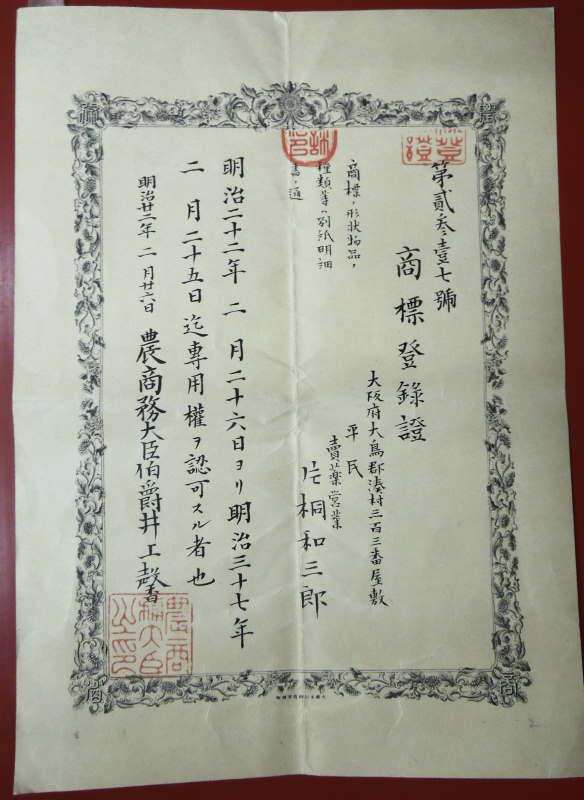 第貳叁壹七號
商標登錄證
大阪府大鳥郡湊村三百三番屋敷
平民
賣藥營業
片桐和三郎
商標ノ形状物品ノ
種類等ハ別紙明細
書ノ通
明治二十二年二月二十六日ヨリ明治三十七年
二月二十五日迄專用權ヲ認可スル者也
明治廿二年二月廿六日
農商務大臣伯爵井上馨
農商
務大臣
之印